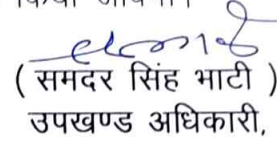 ( समदर सिंह भाटी )
उपखण्ड अधिकारी,